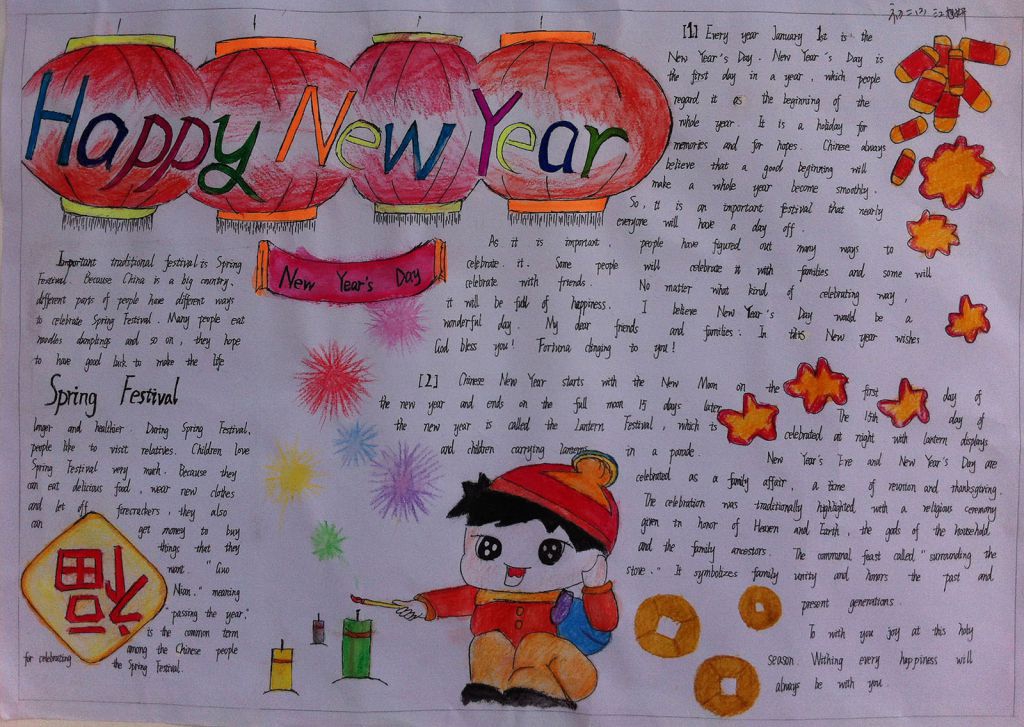 Happy New Year
[1] Every year January 1st is the
New Year's Day. New Year's Day is
the first day in a year, which people
regard it as the beginning of the
whole year. It is a holiday for
memories and for hopes. Chinese always
believe that a good beginning will
make a whole year become smoothly.
So, it is an important festival that nearly
everyone will have a day off.
New Year's Day
As it is important, people have figured out many ways to
celebrate it. Some people will celebrate it with families and some will
celebrate with friends. No matter what kind of celebrating way,
it will be full of happiness. I believe New Year's Day would be a
wonderful day. My dear friends and families. In this New year wishes
God bless you! Fortuna clinging to you!
Important traditional festival is Spring
Festival. Because China is a big country,
different parts of people have different ways
to celebrate Spring Festival. Many people eat
noodles dumplings and so on, they hope
to have good luck to make the life
Spring Festival
longer and healthier. During Spring Festival,
people like to visit relatives. Children love
Spring Festival very much. Because they
can eat delicious food, wear new clothes
and let off forecreckers, they also
can get money to buy
things that they
want. "Guo
Nian." meaning
"passing the year."
is the common term
among the Chinese people
for celebrating the Spring Festival.
福
[2] Chinese New Year starts with the New Moon on the first day of
the new year and ends on the full moon 15 days later. The 15th day of
the new year is called the Lantern Festival, which is celebrated at night with lantern displays
and children carrying lanterns in a parade. New Year's Eve and New Year's Day are
celebrated as a family affair, a time of reunion and thanksgiving.
The celebration was traditionally highlighted with a religious ceremony
given in honor of Heaven and Earth, the gods of the household
and the family ancestors. The communal feast called "surrounding the
stove." It symbolizes family unity and honors the past and
present generations.
To with you joy at this holy
season. Withing every happiness will
always be with you.